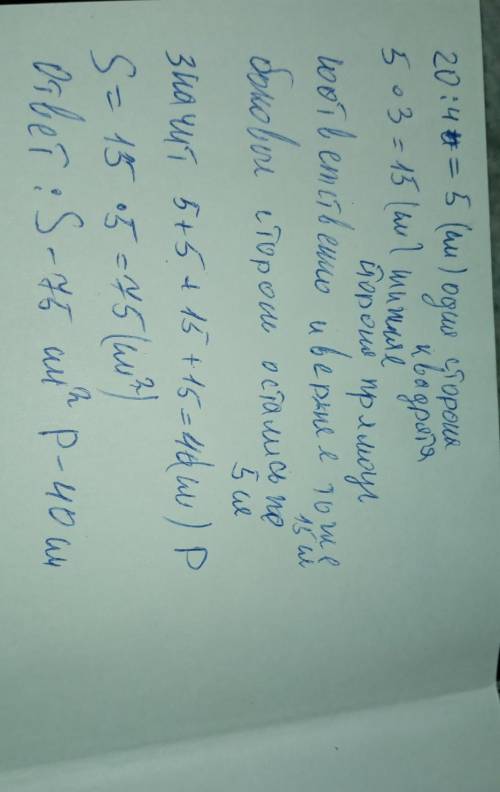 20:4 = 5 (см) одна сторона
квадрата
5 · 3 = 15 (см) нижняя
сторона прямоуг
соответственно и верхнее тоже
15 см
боковые стороны остались по
5 см
значит 5+5+15+15=40(см) P
S = 15 · 5 = 75 (см²)
Ответ: S - 75 см² P - 40 см